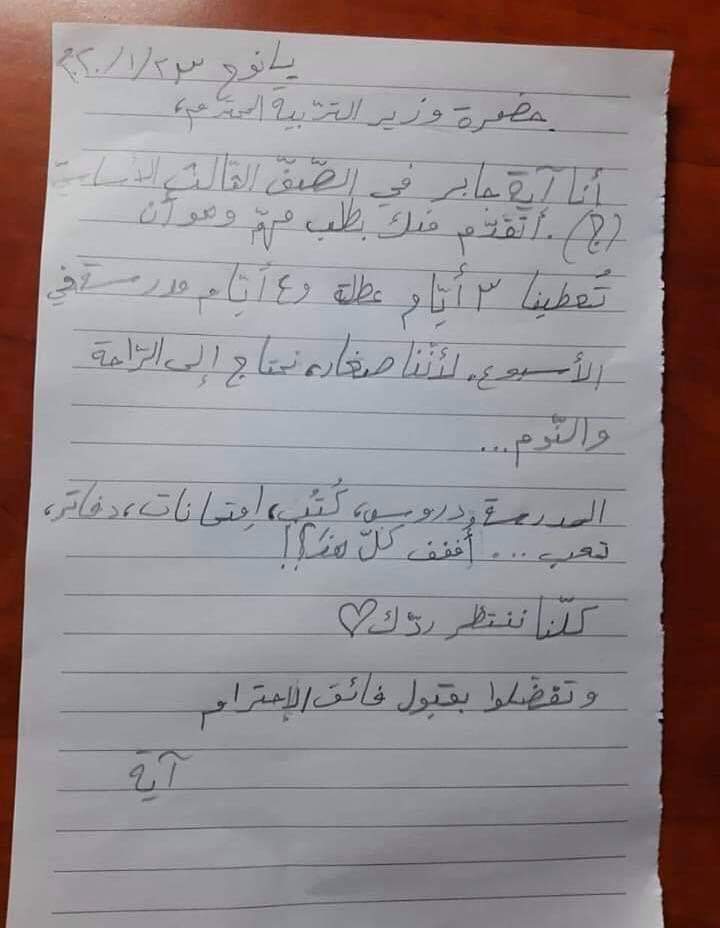 يانوح ٢٣/١/٢٠٢٠
حضرة وزير التربية المحترم،
أنا آية جابر في الصّفّ الثالث الأساسيّ
(ج). أتقدّم منك بطلب مهمّ وهو أن
تُعطينا ٣ أيّام عطلة و٤ أيّام مدرسة في
الأسبوع. لأنّنا صغار، نحتاج إلى الرّاحة
والنّوم...
المدرسة، دروس، كُتُب، إمتحانات، دفاتر،
تعب ... أففف كلّ هذا؟!!
كلّنا ننتظر ردّك ♡
وتفضّلوا بقبول فائق الإحترام
آية